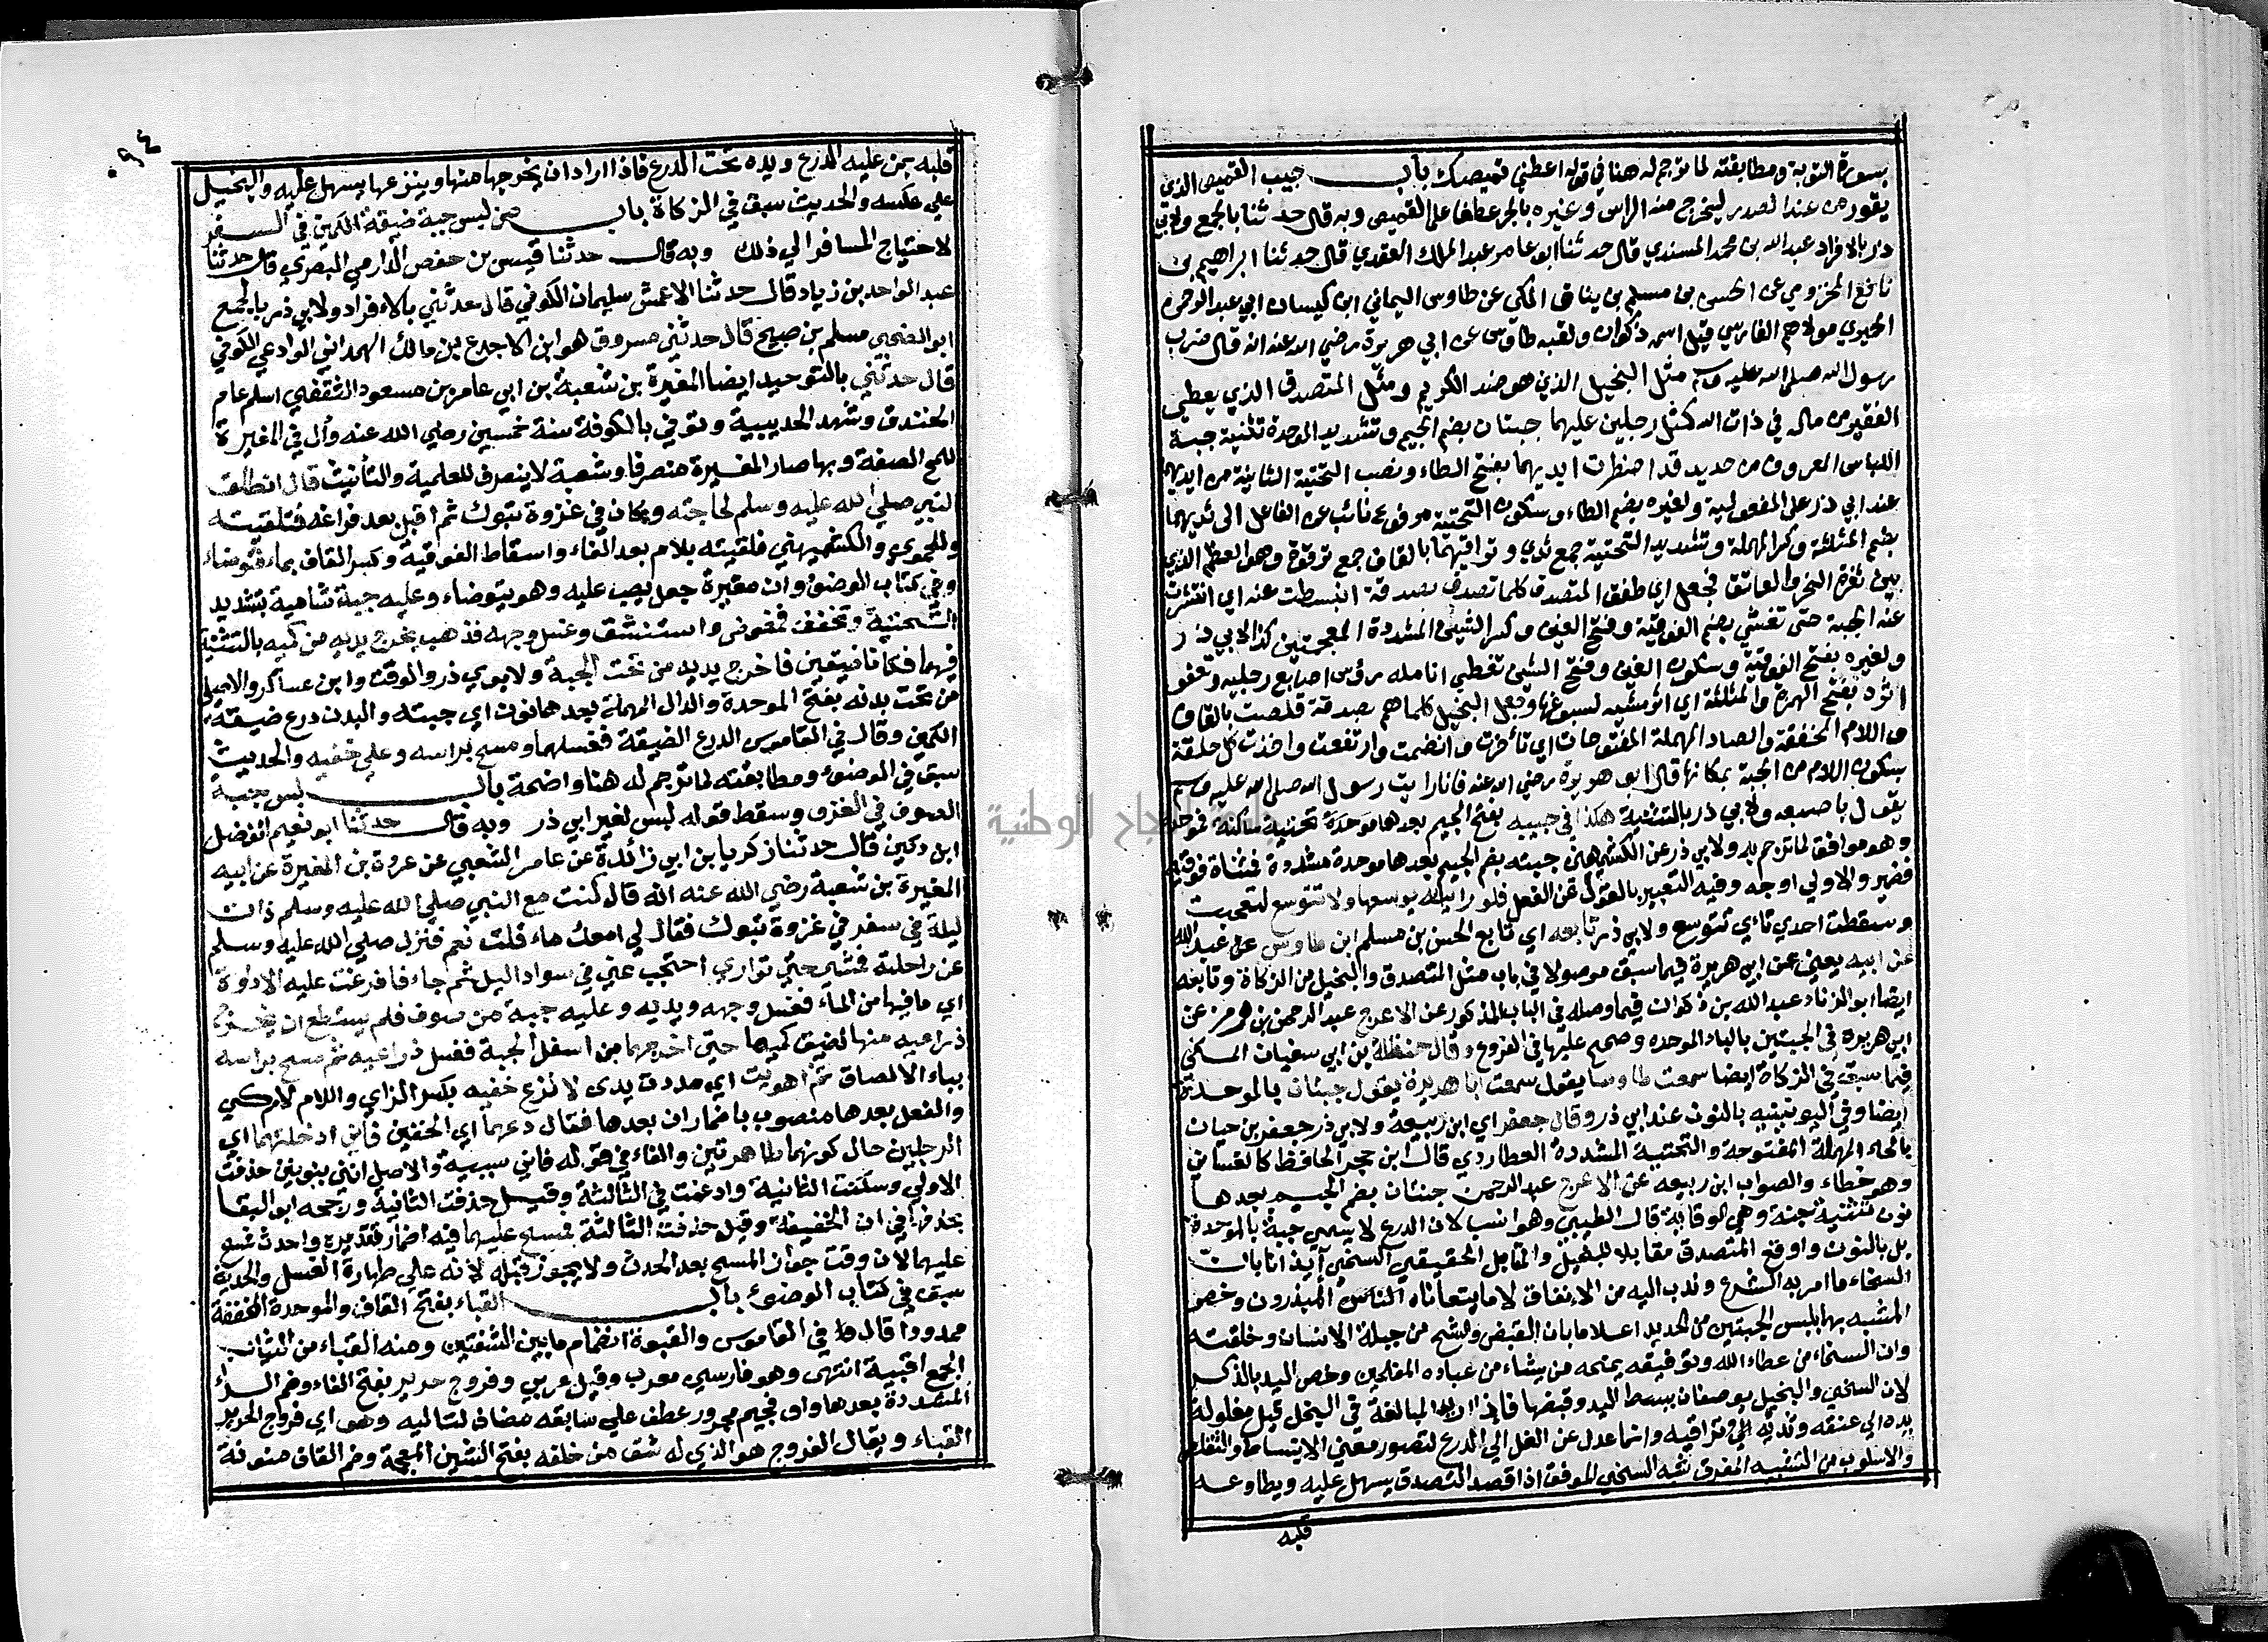 بسورة التوبة ومطابقته لما ترجم له هنا في قوله اعطني قميصك باب جيب القميص الذي
يقور من عند الصدر ليخرج منه الراس وغيره بالجر عطفا على القميص وبه قال حدثنا بالجمع ولابي
ذر بالافراد عبد الله بن محمد المسندي قال حدثنا ابو عامر عبد الملك العقدي قال حدثنا ابراهيم بن
نافع المخزومي عن الحسن بن مسلم بن يناق المكي عن طاوس اليماني ابن كيسان ابي عبد الرحمن
الحميري مولاهم الفارسي قيل اسمه ذكوان ولقبه طاوس عن ابي هريرة رضي الله عنه انه قال ضرب
رسول الله صلى الله عليه وسلم مثل البخيل الذي هو ضد الكريم ومثل المتصدق الذي يعطي
الفقير من ماله في ذات الله كمثل رجلين عليهما جبتان بضم الجيم وتشديد الموحدة تثنية جبة
اللباس المعروف من حديد قد اضطرت ايديهما بفتح الطاء ونصب التحتية الثانية من ايديهما
عند ابي ذر على المفعولية ولغيره بضم الطاء وسكون التحتية مرفوع نائب عن الفاعل الى ثديهما
بضم المثلثة وكسر المهملة وتشديد التحتية جمع ثدي وتراقيهما بالقاف جمع ترقوة وهو العظم الذي
بين ثغرة النحر والعاتق فجعل اي طفق المتصدق كلما تصدق بصدقة انبسطت عنه اي انتشرت
عنه الجبة حتى تغشي بضم الفوقية وفتح الغين وكسر الشين المشددة المعجمتين كذا لابي ذر
ولغيره بفتح الفوقية وسكون الغين وفتح الشين تغطي انامله رؤس اصابع رجليه وتعفو
اثره بفتح الهمزة والمثلثة اي اثر مشيه لسبوغها وجعل البخيل كلما هم بصدقة قلصت بالقاف
واللام المخففة والصاد المهملة المفتوحات اي تأخرت وانضمت وارتفعت واخذت كل حلقة
بسكون اللام من الجبة بمكانها قال ابو هريرة رضي الله عنه فانا رايت رسول الله صلى الله عليه وسلم
يقول باصبعه ولابي ذر بالتثنية هكذا في جيبه بفتح الجيم بعدها موحدة تحتية ساكنة فموحدة
وهو موافق لما ترجم به ولابي ذر عن الكشميهني جبته بضم الجيم بعدها موحدة مشددة فمثناة فوقية
فضمير والاولى اوجه وفيه التعبير بالقول عن الفعل فلو رايته يوسعها ولا تتوسع لتعجبت
وسقطت احدي تاءي تتوسع ولابي ذر تابعه اي تابع الحسن بن مسلم ابن طاوس عن عبد الله
عن ابيه يعني عن ابي هريرة فيما سبق موصولا في باب مثل المتصدق والبخيل من الزكاة وتابعه
ايضا ابو الزناد عبد الله بن ذكوان فيما وصله في الباب المذكور عن الاعرج عبد الرحمن بن هرمز عن
ابي هريرة في الجبتين بالباء الموحدة وصحح عليها في الفروع وقال حنظلة بن ابي سفيان المكي
فيما سبق في الزكاة ايضا سمعت طاوسا يقول سمعت ابا هريرة يقول جبتان بالموحدة
ايضا وفي اليونينية بالنون عند ابي ذر وقال جعفر اي ابن ربيعة ولابي ذر جعفر بن حيان
بالحاء المهملة المفتوحة والتحتية المشددة العطاردي قال ابن حجر الحافظ كالغساني
وهو خطاء والصواب ابن ربيعة عن الاعرج عبد الرحمن جنتان بضم الجيم بعدها
نون تثنية جنة وهي الوقاية قال الطيبي وهو انسب لان الدرع لا يسمى جبة بالموحدة
بل بالنون واوقع المتصدق مقابلا للبخيل والمقابل الحقيقي السخي ايذانا بان
السخاء ما امر به الشرع وندب اليه من الانفاق لا ما يتعاناه الناس المبذرون وخص
المشبه بهما بلبس الجبتين من الحديد اعلاما بان القبض والشح من جبلة الانسان وخلقته
وان السخاء من عطاء الله وتوفيقه يمنحه من يشاء من عباده المفلحين وخص اليد بالذكر
لان السخي والبخيل يوصفان ببسط اليد وقبضها فاذا اريد المبالغة في البخل قيل مغلولة
يده الى عنقه وثديه الى تراقيه وانما عدل عن الغل الى الدرع لتصور معنى الانبساط والتقلص
والاسلوب من التشبيه المفرق شبه السخي الموفق اذا قصد التصدق يسهل عليه ويطاوعه
قلبه
٩٤
قلبه بمن عليه الدرع ويده تحت الدرع فاذا اراد ان يخرجها منها وينزعها يسهل عليه والبخيل
على عكسه والحديث سبق في الزكاة باب من لبس جبة ضيقة الكمين في السفر
لاحتياج المسافر الى ذلك وبه قال حدثنا قيس بن حفص الدارمي البصري قال حدثنا
عبد الواحد بن زياد قال حدثنا الاعمش سليمان الكوفي قال حدثني بالافراد ولابي ذر بالجمع
ابو الضحى مسلم بن صبيح قال حدثني مسروق هو ابن الاجدع بن مالك الهمداني الوادعي الكوفي
قال حدثني بالتوحيد ايضا المغيرة بن شعبة بن ابي عامر بن مسعود الثقفي اسلم عام
الخندق وشهد الحديبية وتوفي بالكوفة سنة خمسين رضي الله عنه وأل في المغيرة
للمح الصفة وبها صار المغيرة منصرفا وشعبة لا ينصرف للعلمية والتأنيث قال انطلق
النبي صلى الله عليه وسلم لحاجته وكان في غزوة تبوك ثم اقبل بعد فراغه فتلقيته
وللحموي والكشميهني فلقيته بلام بعد الفاء واسقاط الفوقية وكسر القاف بماء فتوضاء
وفي كتاب الوضوء وان مغيرة جعل يصب عليه وهو يتوضاء وعليه جبة شامية بتشديد
التحتية وتخفف فمضمض واستنشق وغسل وجهه فذهب يخرج يديه من كميه بالتثنية
فيهما فكانا ضيقين فاخرج يديه من تحت الجبة ولابوي ذر والوقت وابن عساكر والاصيلي
من تحت بدنه بفتح الموحدة والدال المهملة بعدها نون اي جبته والبدن درع ضيقة
الكمين وقال في القاموس الدرع الضيقة فغسلهما ومسح براسه وعلى خفيه والحديث
سبق في الوضوء ومطابقته لما ترجم له هنا واضحة باب لبس جبة
الصوف في الغزو وسقط قوله لبس لغير ابي ذر وبه قال حدثنا ابو نعيم الفضل
ابن دكين قال حدثنا زكريا بن ابي زائدة عن عامر الشعبي عن عروة بن المغيرة عن ابيه
المغيرة بن شعبة رضي الله عنه انه قال كنت مع النبي صلى الله عليه وسلم ذات
ليلة في سفر في غزوة تبوك فقال لي امعك ماء قلت نعم فنزل صلى الله عليه وسلم
عن راحلته فمشى حتى توارى احتجب عني في سواد اليل ثم جاء فافرغت عليه الاداوة
اي ما فيها من الماء فغسل وجهه ويديه وعليه جبة من صوف فلم يستطع ان يخرج
ذراعيه منها لضيق كميها حتى اخرجهما من اسفل الجبة فغسل ذراعيه ثم مسح براسه
بباء الالصاق ثم اهويت اي مددت يدى لانزع خفيه بكسر الزاي واللام لام كي
والفعل بعدها منصوب باضمار ان بعدها فقال دعهما اي الخفين فاني ادخلتهما اي
الرجلين حال كونهما طاهرتين والفاء في قوله فاني سببية والاصل انني بنونين حذفت
الاولى وسكنت الثانية وادغمت في الثالثة وقيل حذفت الثانية ورجحه ابو البقا
بحذفها في ان الخفيفة وقيل حذفت الثالثة فمسح عليهما فيه اضمار تقديره واحدث فمسح
عليهما لان وقت جواز المسح بعد الحدث ولا يجوز قبله لانه على طهارة الغسل والحديث
سبق في كتاب الوضوء باب القباء بفتح القاف والموحدة المخففة
ممدودا قال في القاموس والقبوة انضمام ما بين الشفتين ومنه القباء من الثياب
الجمع اقبية انتهى وهو فارسي معرب وقيل عربي وفروج حرير بفتح الفاء وضم الراء
المشددة بعدها واو فجيم مجرور عطف على سابقه مضاف لتاليه وهو اي فروج الحرير
القباء ويقال الفروج هو الذي له شق من خلفه بفتح الشين المعجمة وضم القاف منونة
جامعة النجاح الوطنية